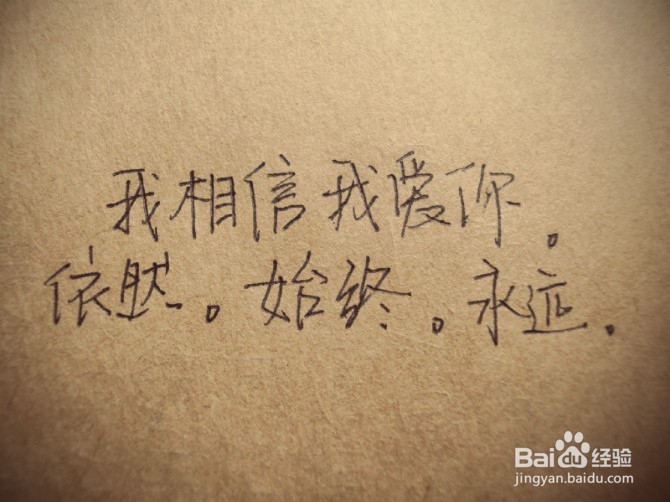 我相信我爱你。
依然。始终。永远。
Baidu经验
jingyan.baidu.com